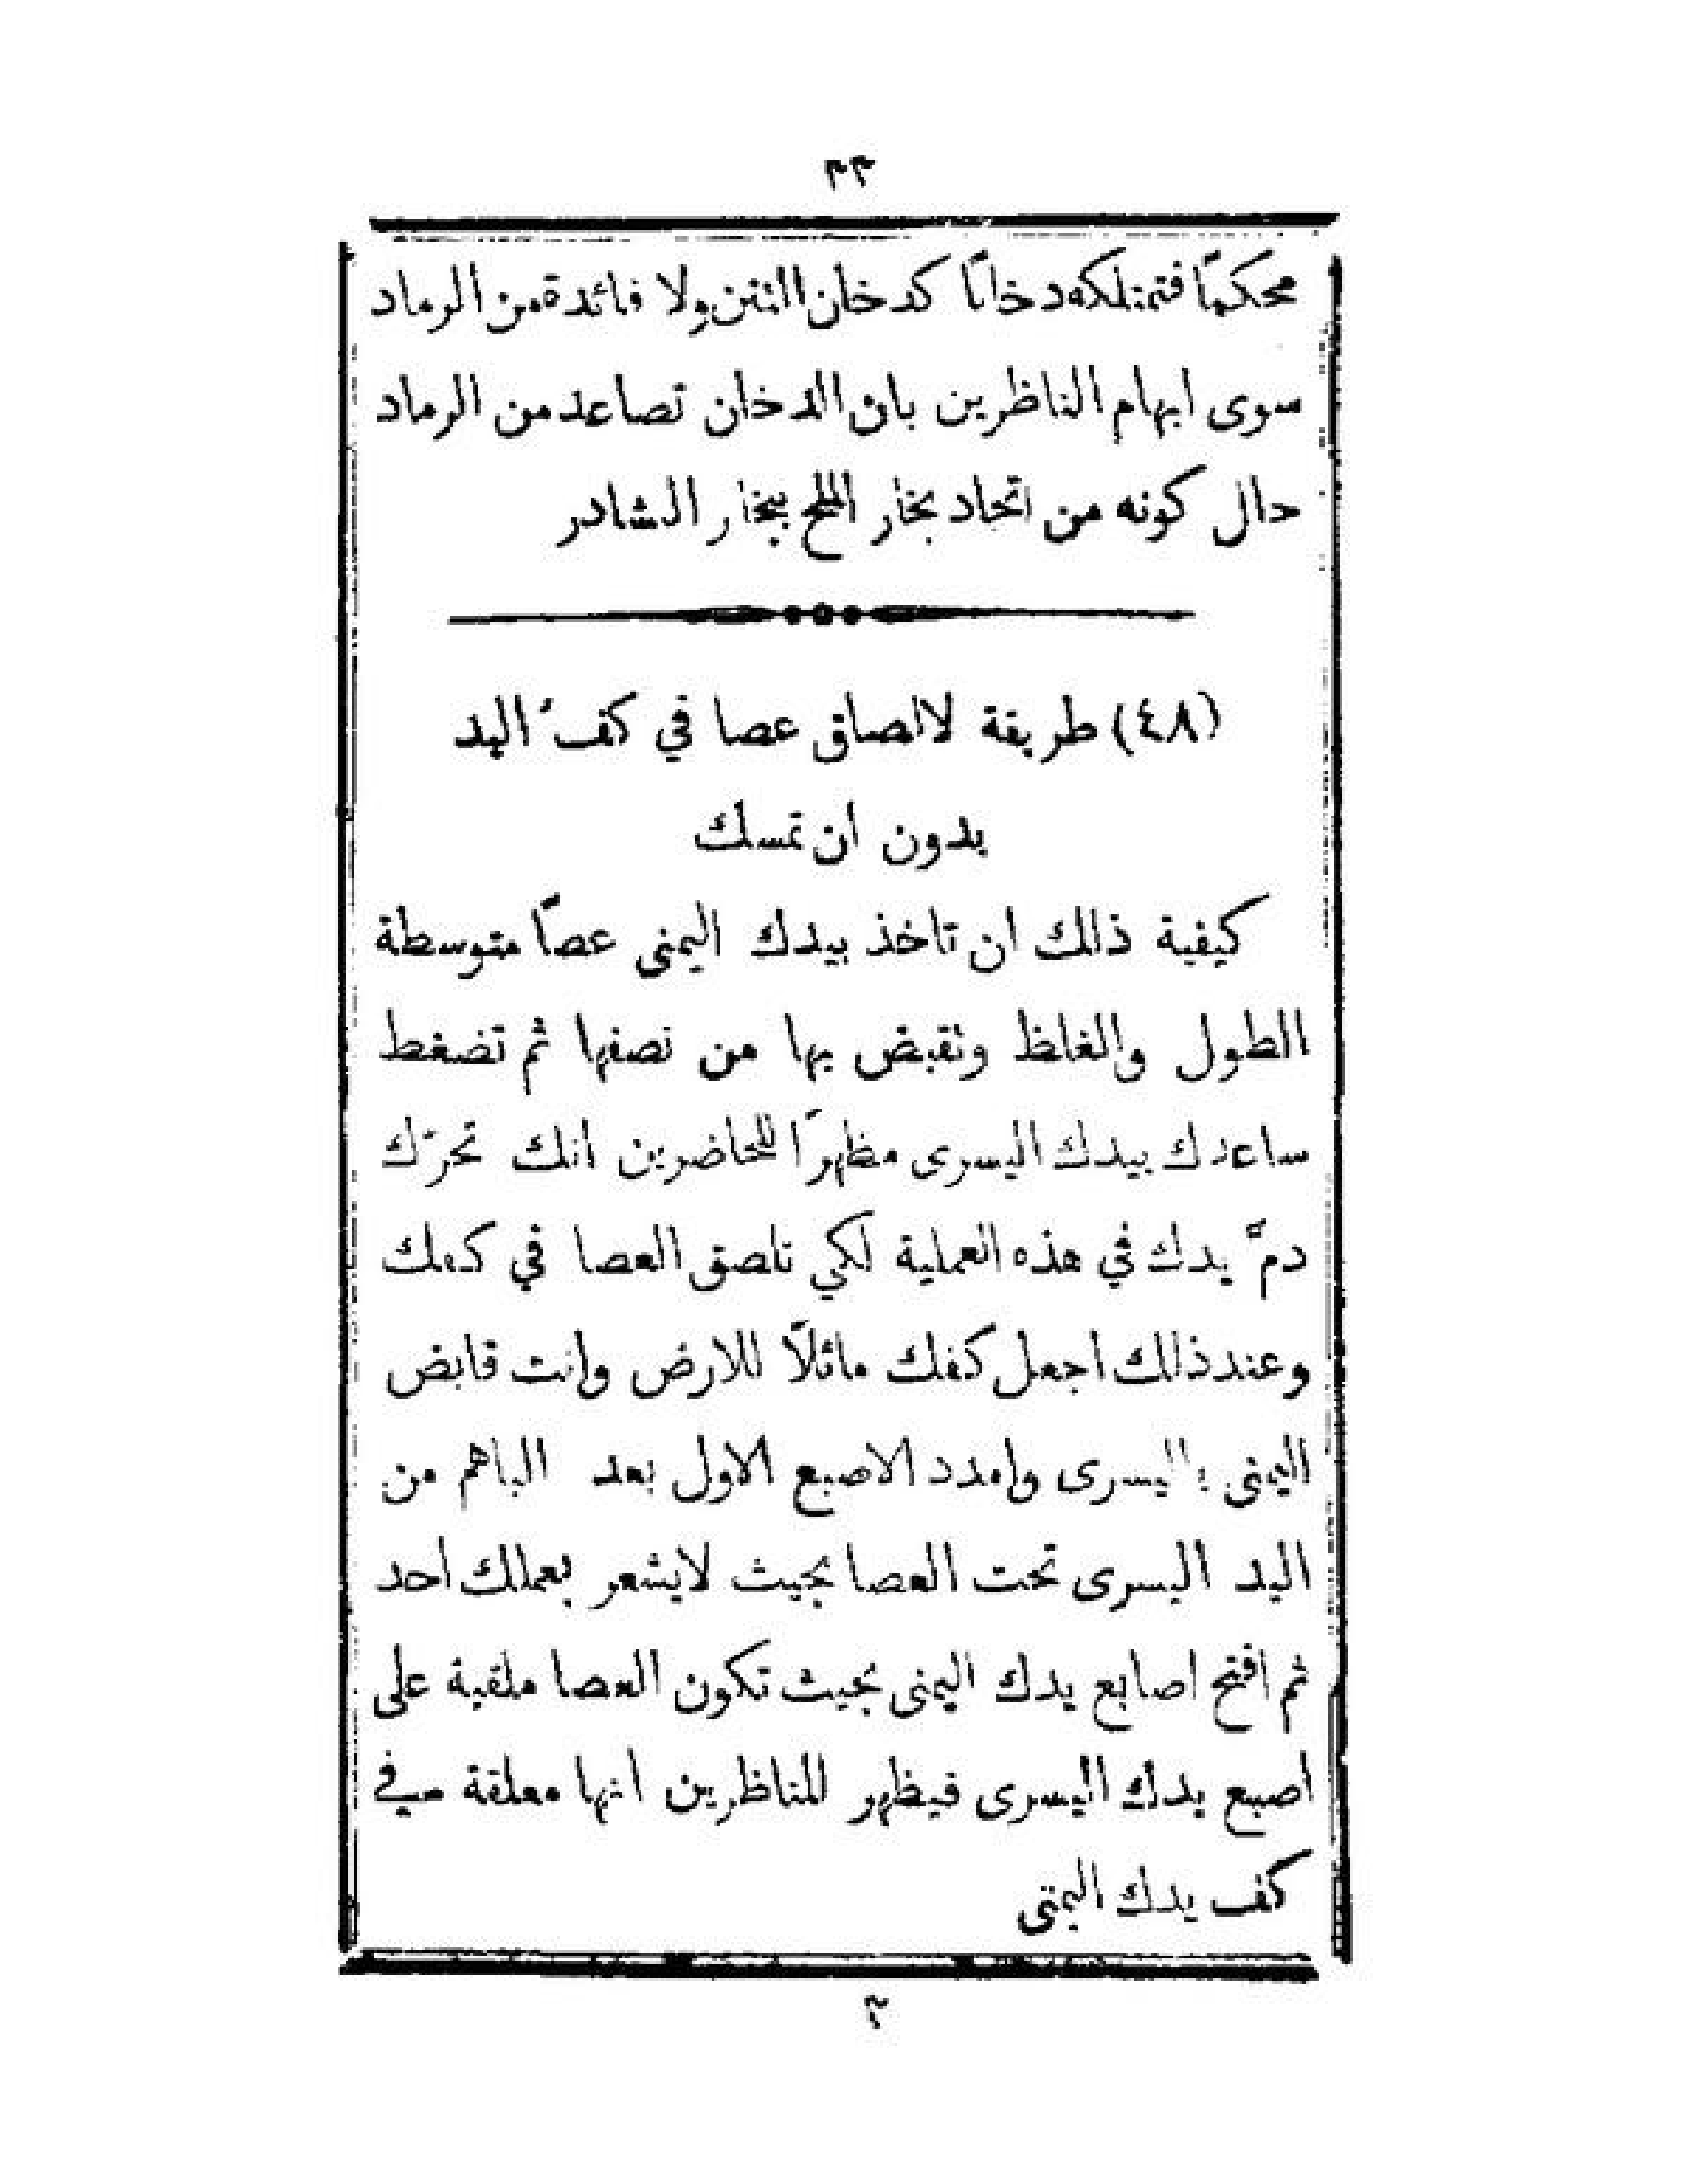 ٣٣
محكمًا فتمتلكه دخانًا كدخان التتن ولا فائدة من الرماد
سوى ايهام الناظرين بان الدخان تصاعد من الرماد
حال كونه من اتحاد بخار الملح ببخار الشادر
(٤٨) طريقة لالصاق عصا في كف اليد
بدون ان تمسك
كيفية ذلك ان تاخذ بيدك اليمنى عصًا متوسطة
الطول والغلظ وتقبض بها من نصفها ثم تضغط
ساعدك بيدك اليسرى مظهرًا للحاضرين انك تحرّك
دمَّ يدك في هذه العملية لكي تلصق العصا في كفك
وعند ذلك اجعل كفك مائلًا للارض وانت قابض
اليمنى باليسرى وامدد الاصبع الاول بعد الباهم من
اليد اليسرى تحت العصا بحيث لايشعر بعملك احد
ثم افتح اصابع يدك اليمنى بحيث تكون العصا ملقية على
اصبع يدك اليسرى فيظهر للناظرين انها معلقة في
كف يدك اليمنى
٣